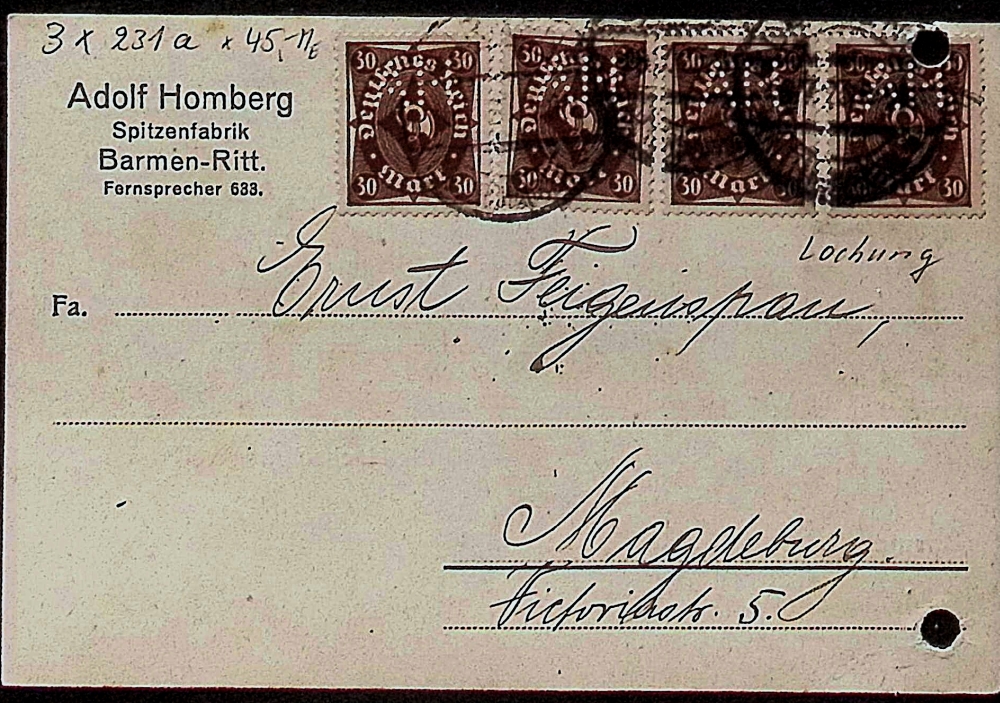 3 x 231a x 45,-
Adolf Homberg
Spitzenfabrik
Barmen-Ritt.
Fernsprecher 688.
30 30 Deutsches Reich 30 Mark 30
30 Deutsches Reich 30 Mark 30
30 30 Deutsches Reich 30 Mark 30
30 Deutsches Reich Mark 30
Lochung
Fa. Ernst Feigenspan,
Magdeburg.
Victoriastr. 5.